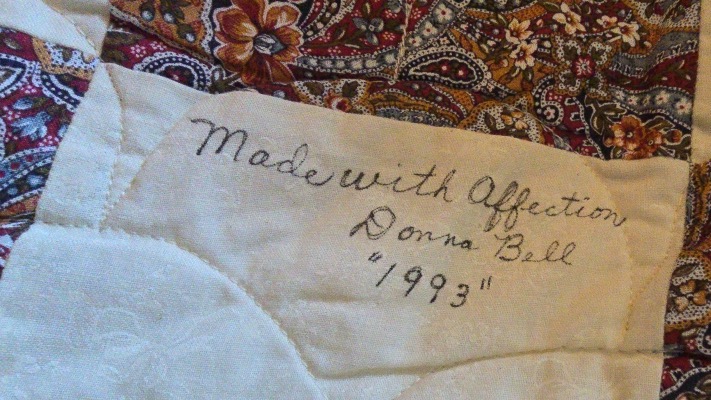 Made with Affection
Donna Bell
"1993"